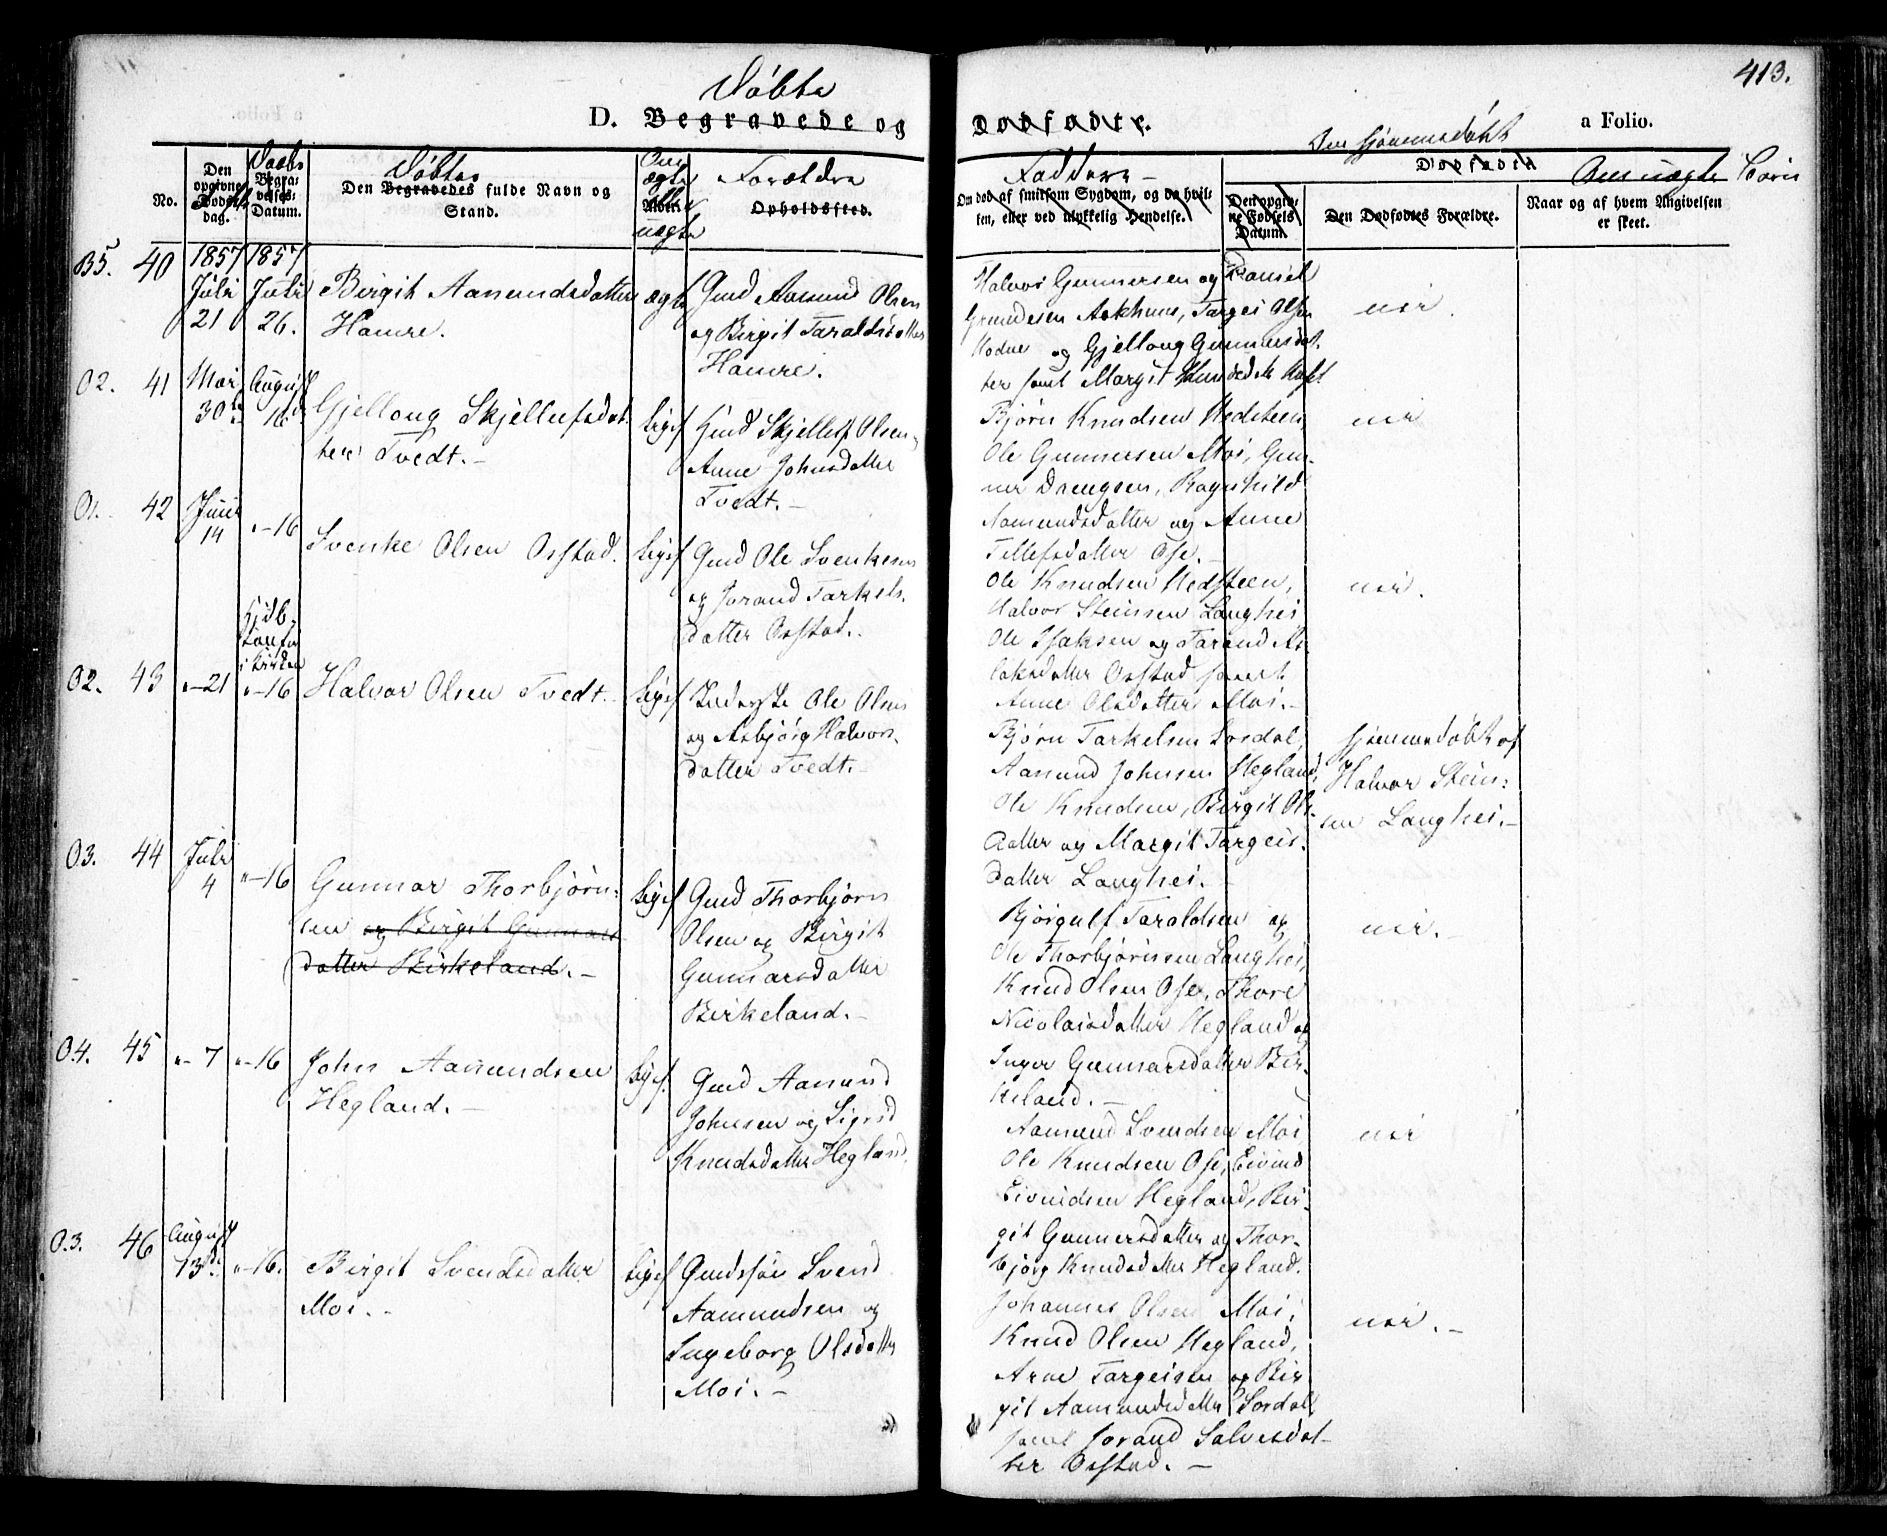 413.
Døbte
D. Begravede og Dødfødte.
a Folio.
No.
Den opgivne Døds-dag.
Daabs
Begra-velses-Datum.
Døbtes
Den Begravedes fulde Navn og Stand.
Om ægte eller uægte
Alder.
Forældre
Opholdssted.
Faddere
Om død af smitsom Sygdom, og da hvil-
ken, eller ved ulykkelig Hendelse.
Den opgiv-
ne Fødsels
Datum.
Om hjemmedøbt
Dødfødt
Den Dødfødtes Forældre.
Om uægte Børn
Naar og af hvem Angivelsen
er skeet.
B5. 40 1857 Juli 21 1857 Juli 26.
Birgit Aanundsdatter
Hamre.
ægte
Gmd Aanund Olsen
og Birgit Taraldsdatter
Hamre.
Halvor Gunnersen og Daniel
Gundersen Askhuus, Targei Olsen
Hodne og Gjellaug Gunnersdat-
ter samt Margit
nei.
O2. 41 Mai 30te August 16de
Gjellaug Skjellefsdat-
ter Tvedt.-
liges
Gmd Skjellef Olsen,
Anne Johnsdatter
Tvedt.-
Bjørn Knudsen Hedsteen,
Ole Gunnersen Moi, Gun-
ner Drengsen, Ragnhild
Aamundsdatter og Anne
Tellefsdatter Ose.-
nei
O1. 42 Juni 14 "-16
Svenke Olsen Osstad.
liges
Gmd Ole Svenkesen
og Jorand Tarkels-
datter Osstad.
Ole Knudsen Hedsteen,
Halvor Steinsen Langhei
Ole Isaksen og Tarand As-
laksdatter Osstad samt
Anne Olsdatter Moi.-
nei.
O2. 43 "-21
Hjdb.
i Kirken
"-16
Halvor Olsen Tvedt.
liges
Inderste Ole Olsen
og Asbjørg Halvors-
datter Tvedt.-
Bjørn Tarkelsen Sordal,
Aanund Johnsen Hegland,
Ole Knudsen, Birgit Ols-
datter og Margit Targeis-
datter Langhei.-
hjemmedøbt af
Halvor Stein-
sen Langhei.-
O3. 44 Juli 4 "-16
Gunnar Thorbjørn-
sen og Birgit Gunnars
datter Birkeland.-
ligef
Gmd Thorbjørn
Olsen og Birgit
Gunnarsdatter
Birkeland.-
Bjørgulf Taraldsen og
Ole Thorbjørnsen Langhei,
Knud Olsen Ose, Thore
Nicolaisdatter Hegland og
Inger Gunnarsdatter Bir-
keland.-
nei.-
O.4. 45 "-7 "-16
John Aanundsen
Hegland.-
ligef.
Gmd Aanund
Johnsen og Sigrid
Knudsdatter Hegland.
Aamund Svendsen Moi
Ole Knudsen Ose, Eivind
Eivindsen Hegland, Bir-
git Gunnersdatter og Thor-
bjørg Knudsdatter Hegland.
nei
O.3. 46 August 13de "-16.
Birgit Svendsdatter
Moi.-
ligef
Gmdssøn Svend
Aamundsen og
Ingeborg Olsdatter
Moi.-
Johannes Olsen Moi,
Knud Olsen Hegland,
Arne Targeisen og Bir-
git Aamundsdatter Sordal
samt Jorand Salvesdat-
ter Osstad.-
nei.-